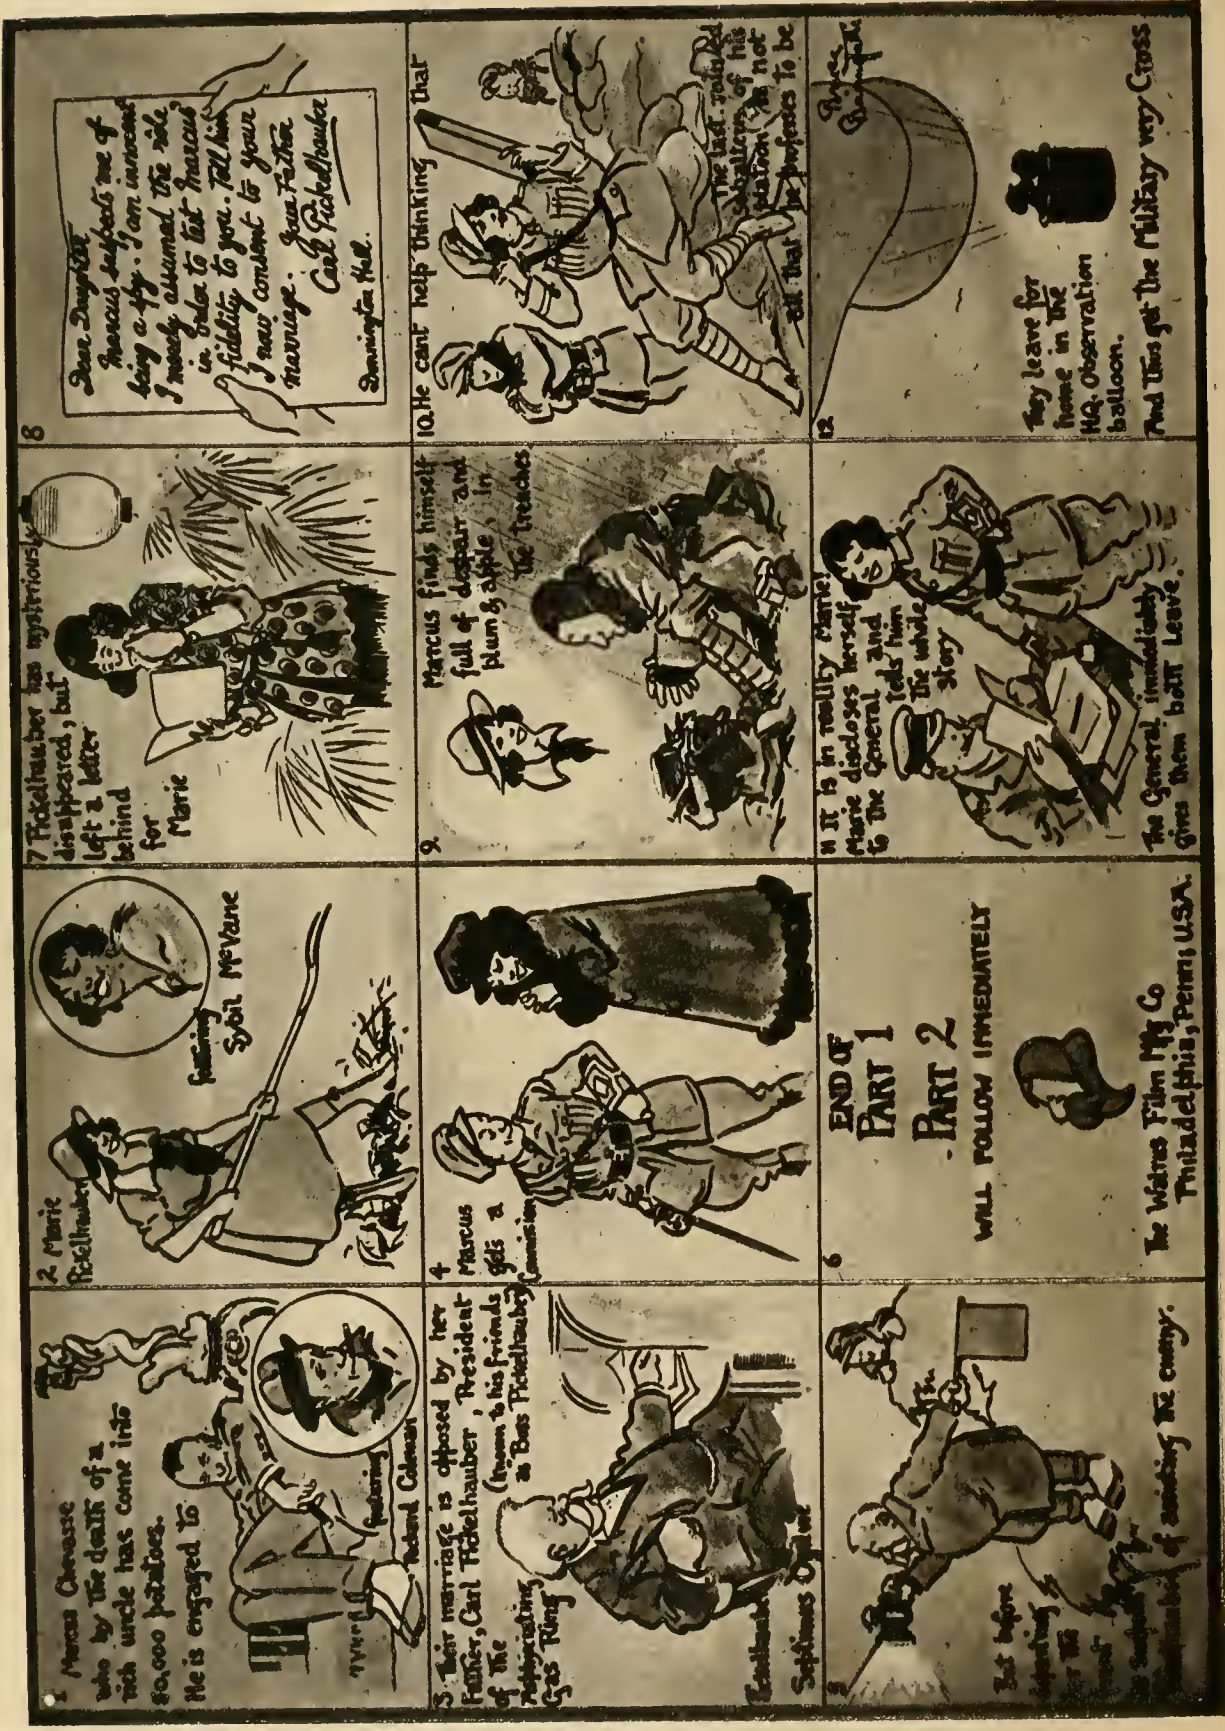 1 Marcus Chevasse
who by the death of a
rich uncle has come into
80,000 potatoes.
He is engaged to
featuring
Richard Coleman
2 Marie
Pickelhauber
featuring
Sybil McVane
3 Their marriage is opposed by her
Father, Carl Pickelhauber, President
of the (known to his friends
Asphyxiating as 'Boss Pickelhauber')
Gas Ring
Septimus
4
Marcus
gets a
Commission
5
But before
departing
for the
front
he suspects
of assisting the enemy.
6
END OF
PART 1
PART 2
WILL FOLLOW IMMEDIATELY
The Walrus Film Mfg Co
Philadelphia, Penn; USA.
7 Pickelhauber has mysteriously
disappeared, but
left a letter
behind
for
Marie
8
Dear Daughter
Marcus suspects me of
being a spy. I am innocent
I merely assumed the rôle
in order to test Marcus'
fidelity to you. Tell him
I now consent to your
marriage. Your Father
Carl Pickelhauber
Donnington Hall.
9. Marcus finds himself
full of despair and
plum & apple, in
the trenches
10. He cant help thinking that
The last joined
subaltern of his
platoon is not
all that he professes to be
11 It is in reality Marie!
Marie discloses herself
to the General and
tells him
the whole
story
The General immediably
gives them both leave.
12
They leave for
home in the
HQ. Observation
balloon.
And thus get the Military very Cross